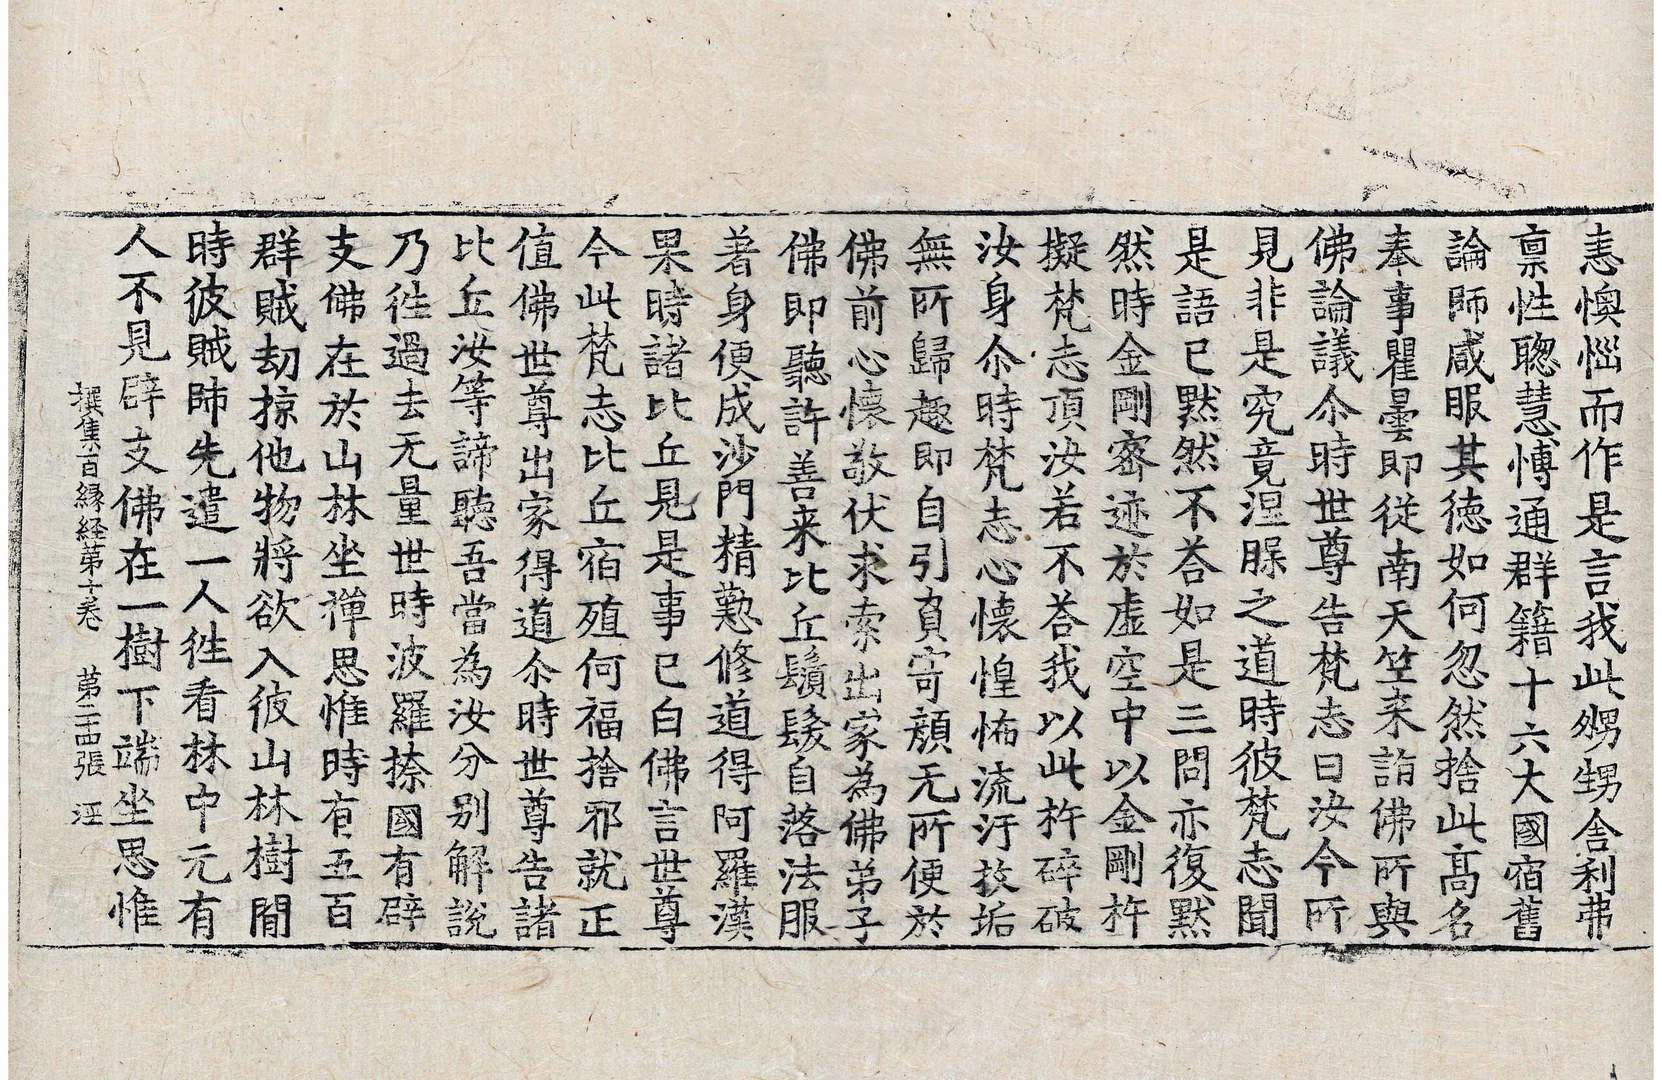 恚懊惱而作是言我此甥甥舍利弗
禀性聦慧愽通群籍十六大國宿舊
論師咸服其德如何忽然捨此髙名
奉事瞿曇即從南天竺来詣佛所與
佛論議尒時世尊告梵志曰汝今所
見非是究竟涅槃之道時彼梵志聞
是語已黙然不荅如是三問亦復黙
然時金剛密迹於虛空中以金剛杵
擬梵志頂汝若不荅我以此杵碎破
汝身尒時梵志心懷惶怖流汗技垢
無所歸趣即自引負寄顔无所便於
佛前心懷敬伏求索出家為佛弟子
佛即聽許善来比丘鬚髮自落法服
著身便成沙門精懃修道得阿羅漢
果時諸比丘見是事已白佛言世尊
今此梵志比丘宿殖何福捨邪就正
值佛世尊出家得道尒時世尊告諸
比丘汝等諦聽吾當為汝分別解說
乃徃過去无量世時波羅㮈國有辟
支佛在於山林坐禪思惟時有五百
群賊劫掠他物將欲入彼山林樹間
時彼賊帥先遣一人徃看林中元有
人不見辟支佛在一樹下端坐思惟
撰集百縁経苐十卷 苐二十四張 涇